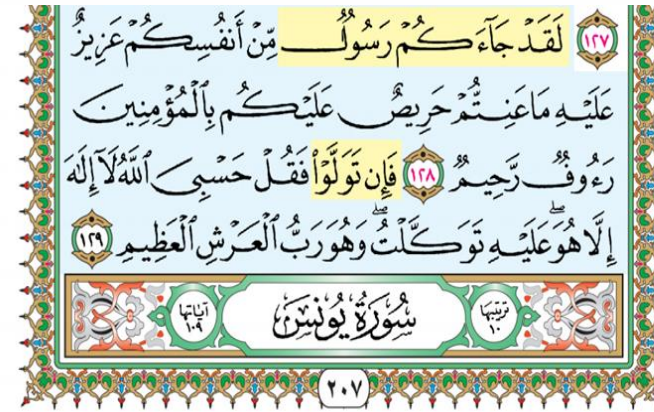 ١٢٧ لَقَدْ جَآءَكُمْ رَسُولٌ مِّنْ أَنفُسِكُمْ عَزِيزٌ
عَلَيْهِ مَا عَنِتُّمْ حَرِيصٌ عَلَيْكُم بِٱلْمُؤْمِنِينَ
رَءُوفٌ رَّحِيمٌ ١٢٨ فَإِن تَوَلَّوْا۟ فَقُلْ حَسْبِىَ ٱللَّهُ لَآ إِلَٰهَ
إِلَّا هُوَ ۖ عَلَيْهِ تَوَكَّلْتُ ۖ وَهُوَ رَبُّ ٱلْعَرْشِ ٱلْعَظِيمِ ١٢٩
ترتيبها ١٠ سُورَةُ يُونُسَ آياتها ١٠٩
٢٠٧